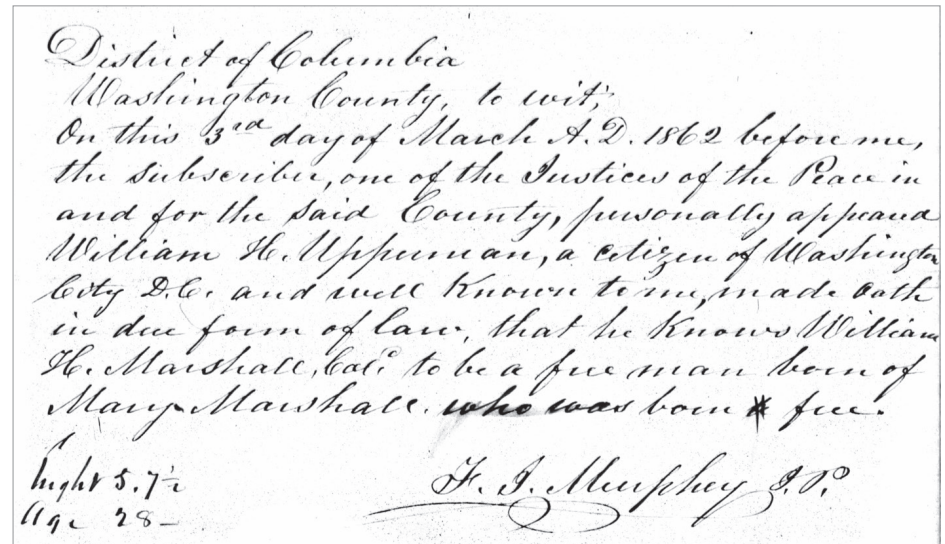 District of Columbia
Washington County, to wit;
On this 3rd day of March A.D. 1862 before me,
the subscriber, one of the Justices of the Peace in
and for the said County, personally appeared
William H. Upperman, a citizen of Washington
City D.C. and well Known to me, made oath
in due form of law, that he Knows William
H. Marshall, Cold. to be a free man born of
Mary Marshall. who was born free.
hight 5.7½
Age 28-
F. I. Murphey J.P.